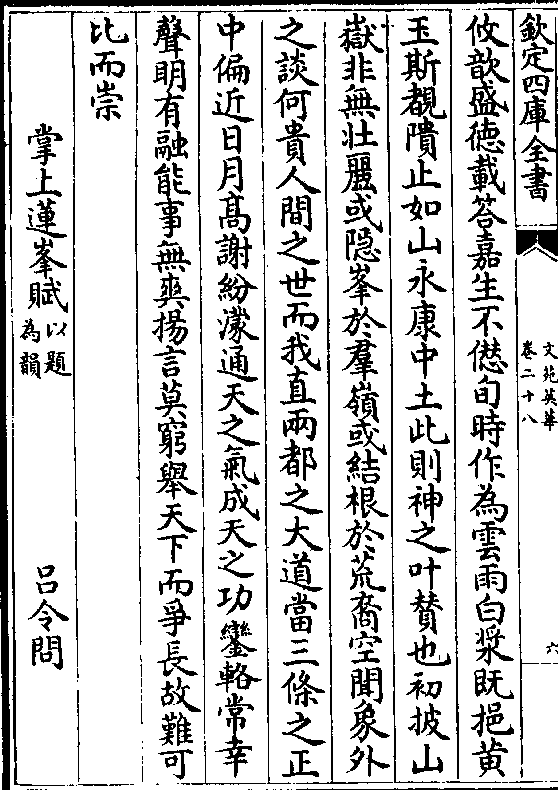 欽定四庫全書
文苑英華
卷二十八
六
攸歆盛德載答嘉生不愆旬時作為雲雨白漿既挹黄
玉斯覩隤止如山永康中土此則神之叶賛也初披山
嶽非無壮麗或隠峯於羣嶺或結根於荒裔空聞象外
之談何貴人間之世而我直兩都之大道當三條之正
中偏近日月髙謝紛濛通天之氣成天之功鑾輅常幸
聲明有融能事無爽揚言莫窮舉天下而爭長故難可
比而崇
掌上蓮峯賦以題為韻 吕令問